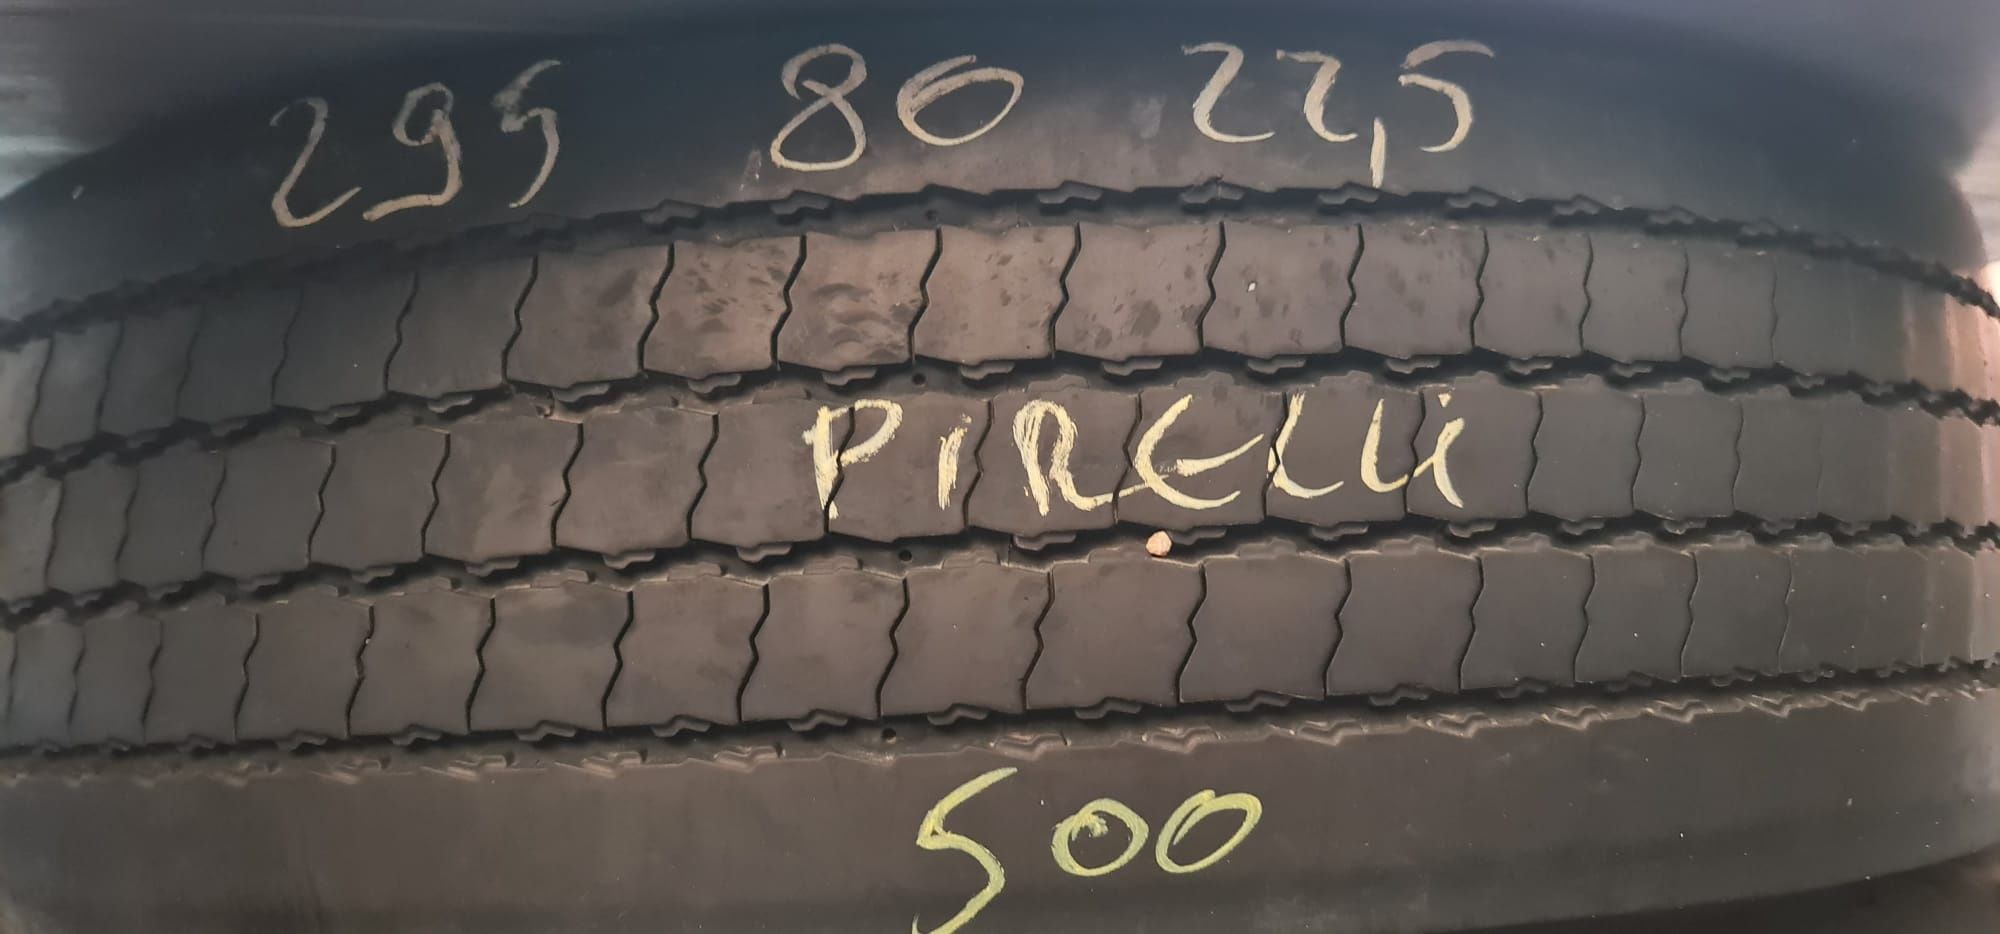 295 80 22,5
PIRELLi
500